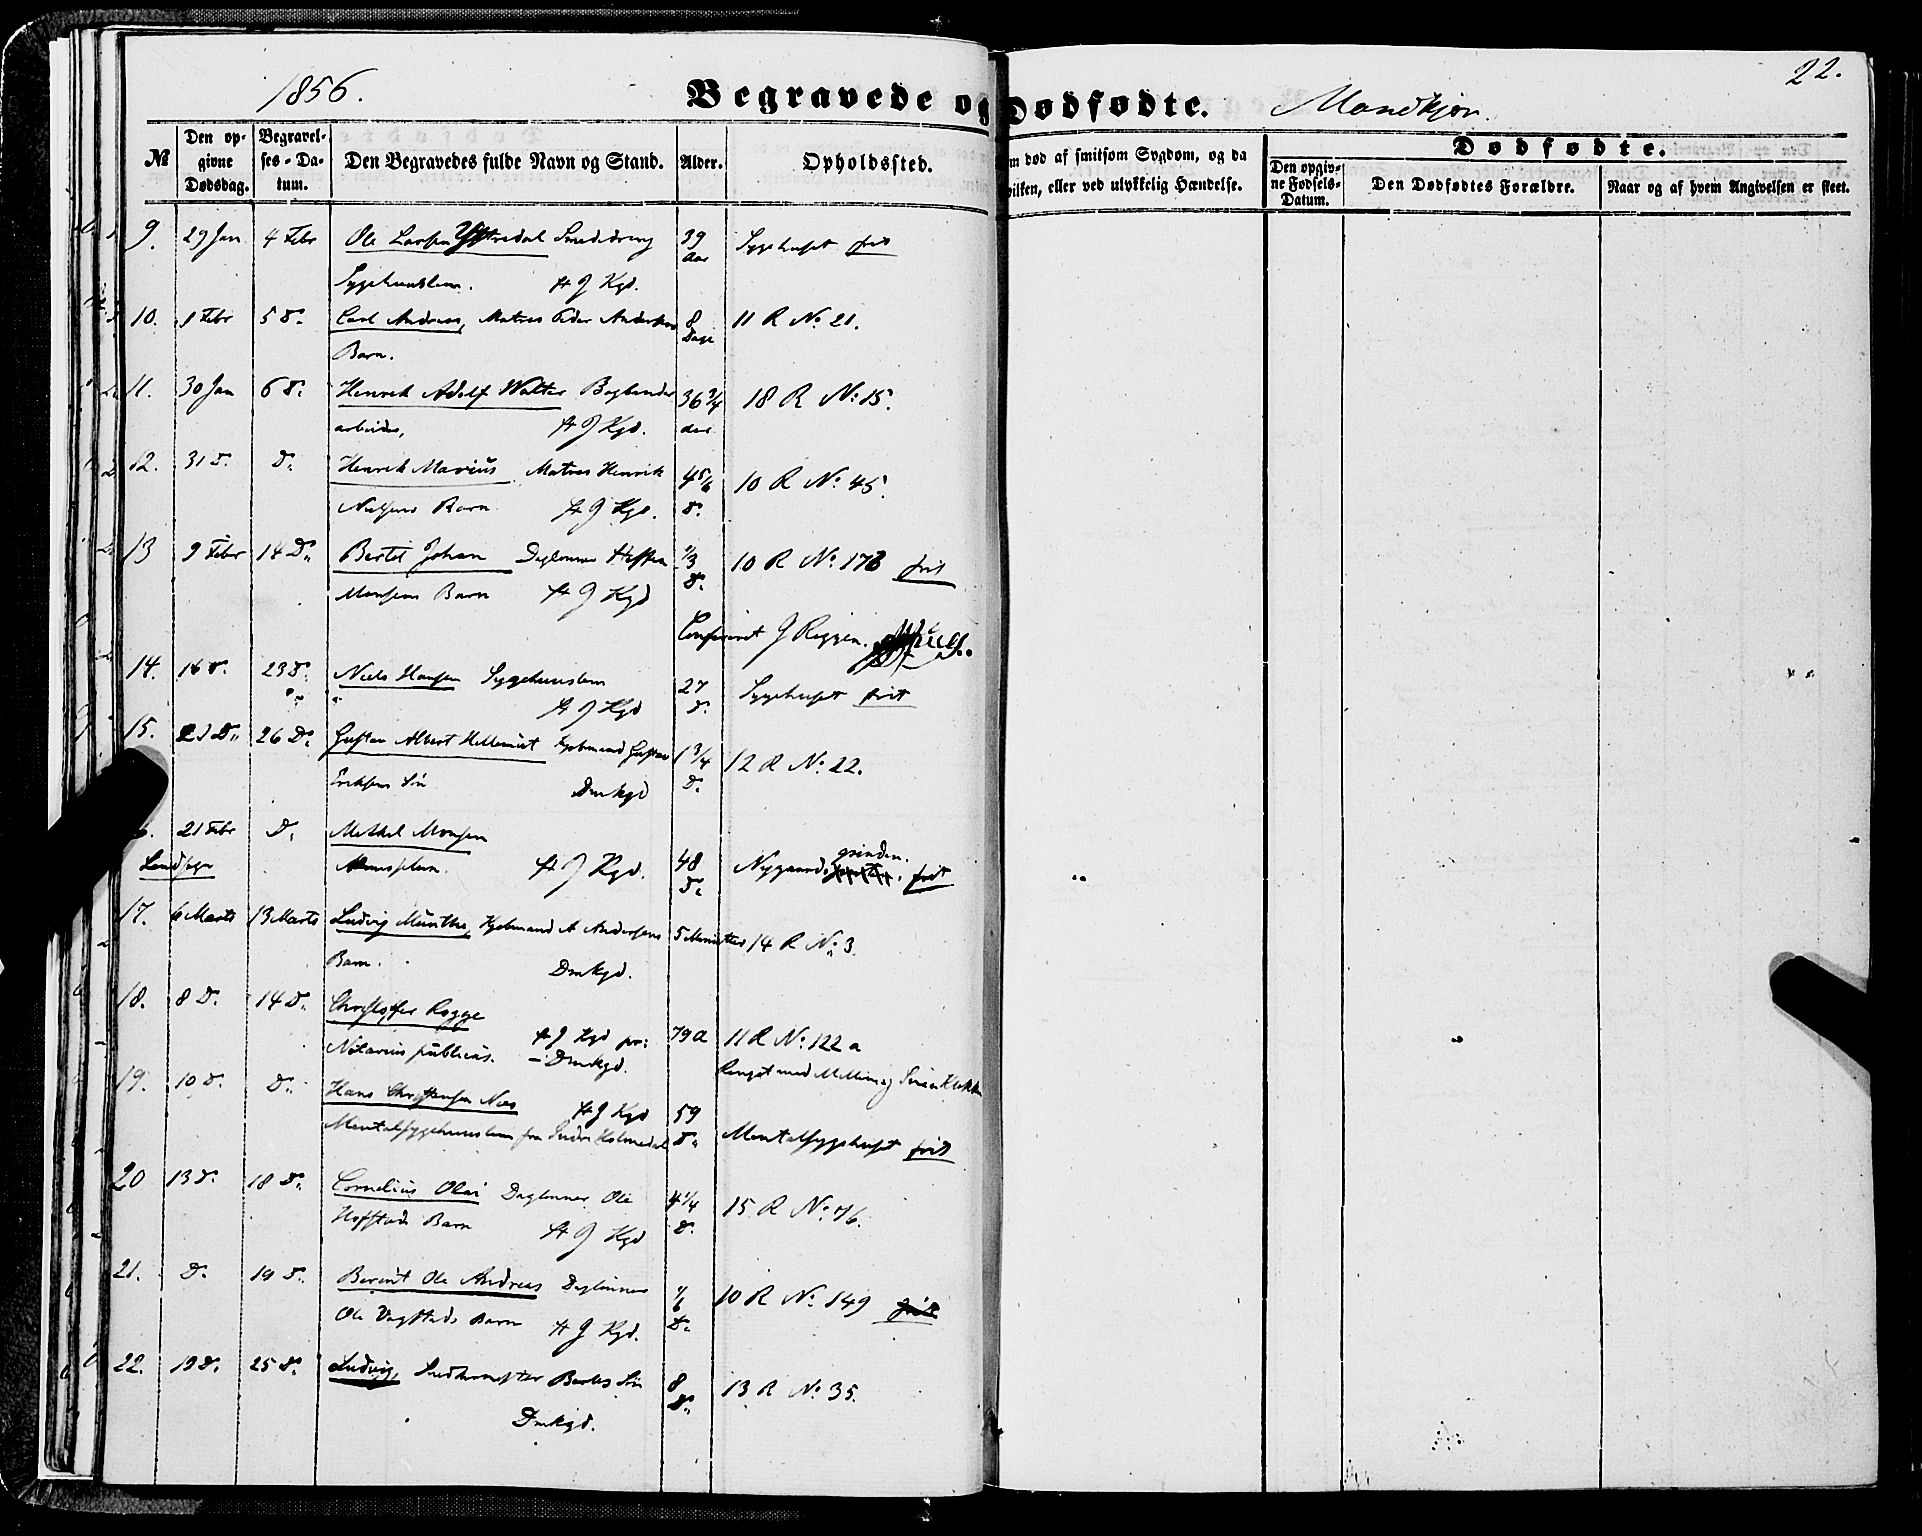 1856.
Begravede og Dødfødte.
Mandkjøn.
22.
№
Den opgivne Dødsdag.
Begravelses-Datum.
Den Begravedes fulde Navn og Stand.
Alder.
Opholdssted.
m død af smitsom Sygdom, og da
vilken, eller ved ulykkelig Hændelse.
Dødfødte.
Den opgivne Fødsels-Datum.
Den Dødfødtes Forældre.
Naar og af hvem Angivelsen er skeet.
9. 29 Jan 4 Febr Ole Larsen 39 Aar Sygehuset frit
Sygehuuslem. St J Kgd.
10. 1 Febr 5 D. Carl Andreas, Matros Peder Andersens 8 Dage 11 R No. 21.
Barn.
11. 30 Jan 6 D. Henrik Adolf Walter Bogbinder 36 3/4 Aar 18 R No. 15.
arbeider, St J Kgd.
12. 31 D. D. Henrik Marius Matros Henrik 4 5/6 D. 10 R No. 45.
Nielsens Barn St J Kgd.
13 9 Febr 14 D. Bertel Johan Daglønner Steffen 1/3 D. 10 R No. 173 frit
Monsens Barn St J Kgd
Confereret J Riggen.
14. 16 D. 23 D. Niels Hansen Sygehuuslem 27 D. Sygehuset frit
St J Kgd
15. 21 D. 26 D. Gustav Albert Kjøbmand Gustav 1 3/4 D. 12 R No. 22.
Eriksens Søn Dmkgd
21 Febr D. Methel Monsen
Landsogn Almuslem. St J Kgd. 48 D. Nygaards grinden. frit
17. 6 Marts 13 Marts Ludvig Münthe, Kjøbmand A Andersens 5 Minutter 14 R No. 3.
Barn. Dmkgd.
18. 8 D. 14 D. Christoffer Rogge
Notarius publicus. St J Kgd pr: 79 a 11 R No. 122 a
Dmkgd.
Ringet med Mellem og Klokke
19. 10 D. D. Hans Christensen Næs St J Kgd 59 D.
Mentalsygehuuslem fra Indre Holmedal Mentalsygehuset frit
20 13 D. 18 D. Cornelius Olai Daglønner Ole 4 1/4 D. 15 R No. 76.
Hofstads Barn St J Kgd
21. D. 19 D. Berent Ole Andreas Daglønner 1/6 D. 10 R No. 149 frit
Ole Vagstads Barn St J Kgd.
22. 19 D. 25 D. Ludvig, Snedkermester Søn 8 D. 13 R No. 35.
Dmkgd.